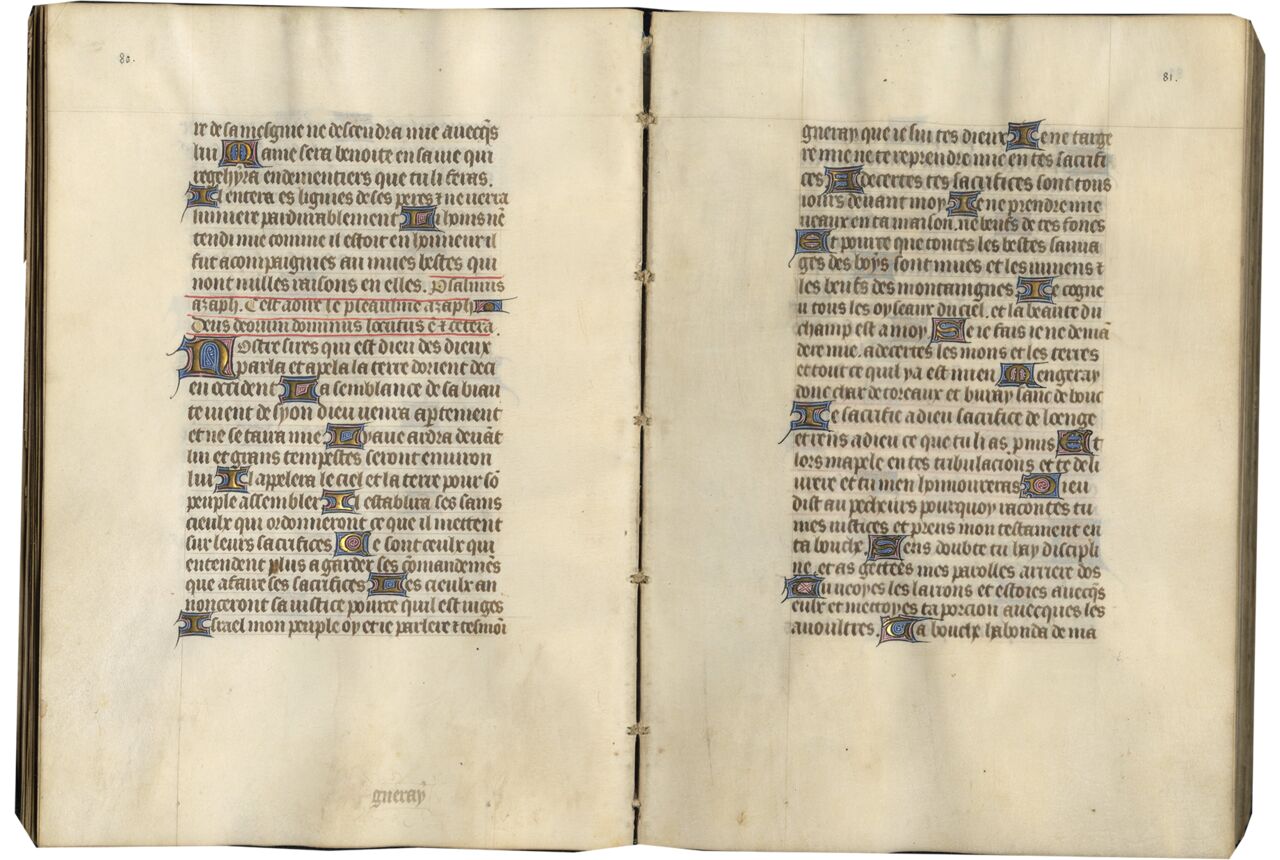 80.
re de sa mesgnie ne descendra mie avecq̄s
lui Mame sera benoite en sa vie qui
regehyra endementiers que tu li feras.
Il entera es lignies de ses peres ⁊ ne verra
lumiere pardurablement Li homs nē
tendi mie comme il estoit en honneur il
fut acompaignies au mues bestes qui
nont nulles raisons en elles. Psalmus
azaph. Cest adire le pseaulme azaph
Deus deorum dominus locutus ē ⁊ cetera.
Nostre sires qui est dieu des dieux
parla et apela la terre dorient deci
en occident La semblance de sa biau
te vient de syon dieu venra aptement
et ne se taira mie Li yaue ardra devāt
lui et grans tempestes seront environ
lui Il appelera le ciel et la terre pour sō
peuple assembler Il establira ses sains
cieulx qui ordonneront ce que il mettent
sur leurs sacrifices Ce sont ceulx qui
entendent plus a garder ses cōmandemēs
que a faire ses sacrifices Les cieulx an
nonceront sa iustice pource quil est iuges
Israel mon peuple oy et ie parlere ⁊ tesmoi
gueray
81.
gueray que ie sui tes dieux Ie ne targe
re mie ne te reprendre mie en tes sacrifi
ces Adecertes tes sacrifices sont tous
iours devant moy Ie ne prendre mie
veaux en ta maison. ne beufs de tes fones
Et pource que toutes les bestes sauva
ges des boys sont mues et les iumens ⁊
les beufs des montaingnes Ie cogne
u tous les oyseaux du ciel. et la beaute du
champ est a moy Se ie fais ie ne demā
dere mie. adecertes les mons et les terres
et tout ce quil ya est mien Mengeray
donc char de toreaux et buray sanc de bouc
Te sacrifie a dieu sacrifice de loenge
et rens a dieu ce que tu li as pmis Et
lors mapele en tes tribulacions et te deli
vrere et tu men honnoureras Dieu
dist au pecheurs pourquoy racontes tu
mes iustices et prens mon testament en
ta bouche. Sens doubte tu hay discipli
ne. et as gettees mes parolles arriere dos
Tu veoyes les larrons et estoies avecq̄s
eulx et mettoyes ta porcion avecques les
avoultres. Ta bouche habonda de ma